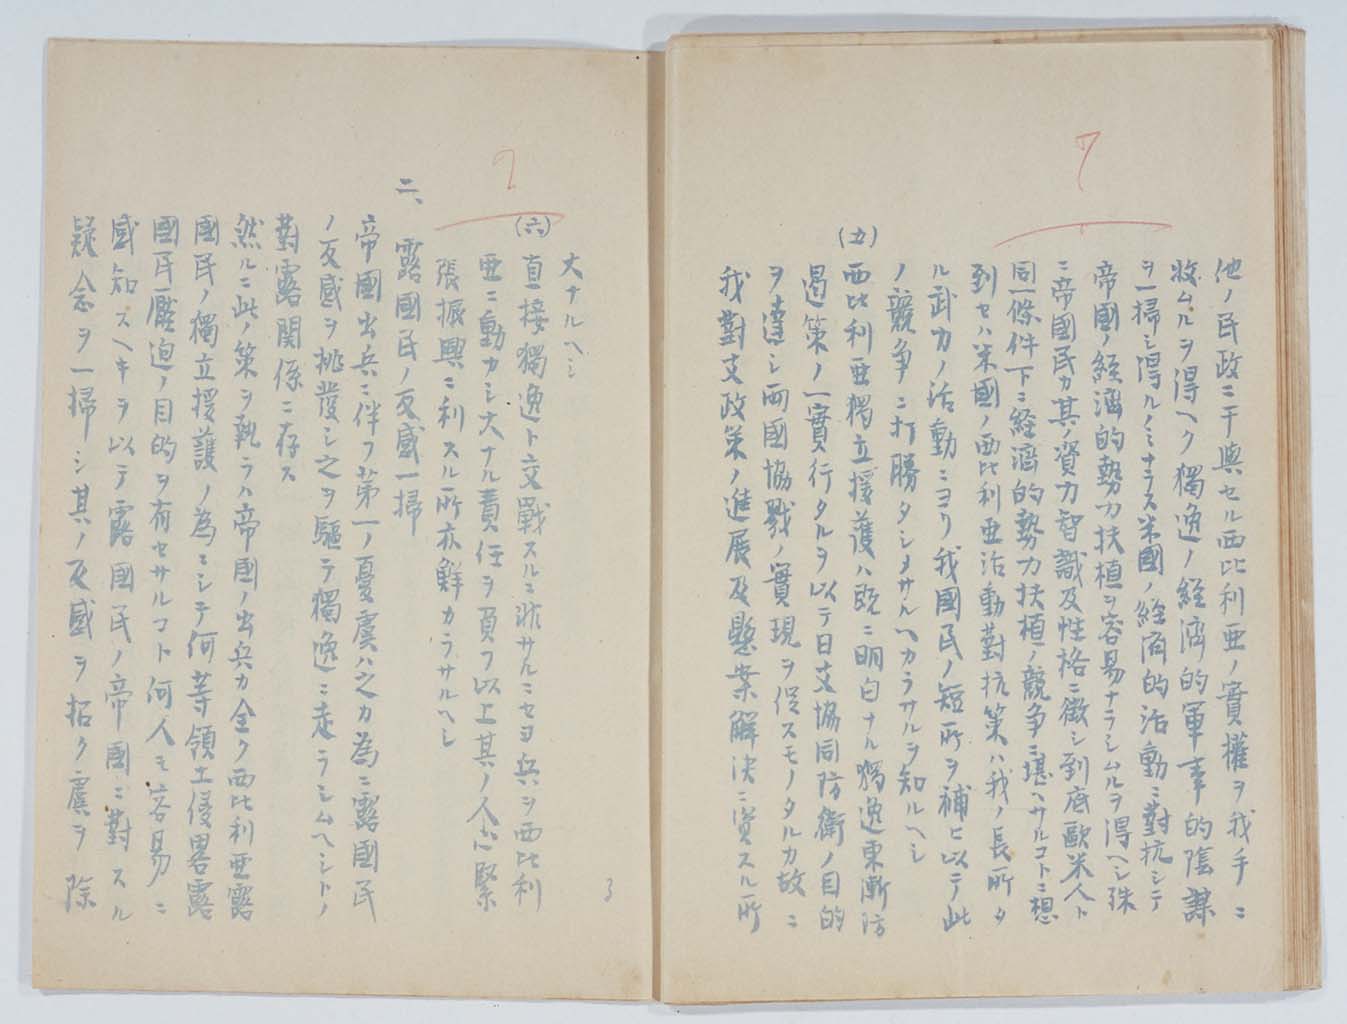 他ノ民政ニ干與セル西比利亜ノ實權ヲ我手ニ
收ムルヲ得ヘク獨逸ノ経済的軍事的陰謀
ヲ一掃シ得ルノミナラス米國ノ経済的活動ニ對抗シテ
帝國ノ経済的勢力扶植ヲ容易ナラシムルヲ得ヘシ殊
ニ帝國民カ其ノ資力智識及性格ニ徴シ到底歐米人ト
同一條件下ニ経済的勢力扶植ノ競争ニ堪ヘサルコトニ想
到セハ米國ノ西比利亜活動對抗策ハ我ノ長所タ
ル武力ノ活動ニヨリ我國民ノ短所ヲ補ヒ以テ此
ノ競争ニ打勝タシメサルヘカラサルヲ知ルヘシ
(五)
西比利亜獨立援護ハ既ニ明白ナル獨逸東漸防
遏策ノ一實行タルヲ以テ日支協同防衛ノ目的
ヲ達シ両國協戮ノ實現ヲ促スモノタルカ故ニ
我對支政策ノ進展及懸案解決ニ資スル所
大ナルヘシ
(六)
直接獨逸ト交戰スルニ非サルニセヨ兵ヲ西比利
亜ニ動カシ大ナル責任ヲ負フ以上其ノ人心緊
張振興ニ利スル所亦鮮カラサルヘシ
二、
露國民ノ反感一掃
帝國出兵ニ伴フ第一ノ憂虞ハ之カ為ニ露國民
ノ反感ヲ挑發シ之ヲ驅テ獨逸ニ走ラシムヘシトノ
對露関係ニ存ス
然ルニ此ノ策ヲ執ラハ帝國ノ出兵カ全ク西比利亜露
國民ノ獨立援護ノ為ニシテ何等領土侵畧露
國民壓迫ノ目的ヲ有セサルコト何人モ容易ニ
感知スヘキヲ以テ露國民ノ帝國ニ對スル
疑念ヲ一掃シ其ノ反感ヲ招ク虞ヲ除
3